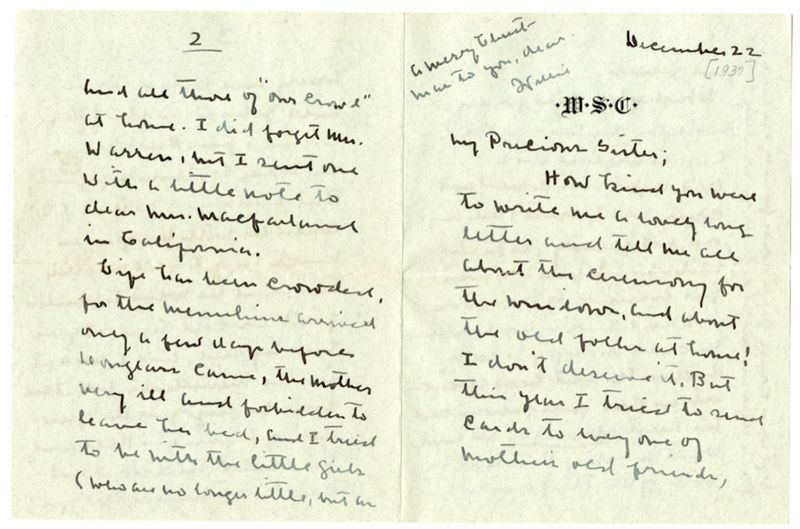 December 22
[1937]
a merry Christ-
mas to you, dear
Hallie
·W·S·C·
My Precious Sister;
How kind you were
to write me a lovely long
letter and tell me all
about the ceremony for
the window, and about
the old folks at home!
I don't deserve it. But
this year I tried to send
cards to every one of
mother's old friends,
2
and all those of "our crowd"
at home. I did forget Mrs.
Warren, but I sent one
with a little note to
dear Mrs. Macfarland
in California.
Life has been crowded,
for the arrived
only a few days before
Douglass came, the mother
very ill and forbidden to
leave her bed, and I tried
to be with the little girls
(who are no longer little, but are